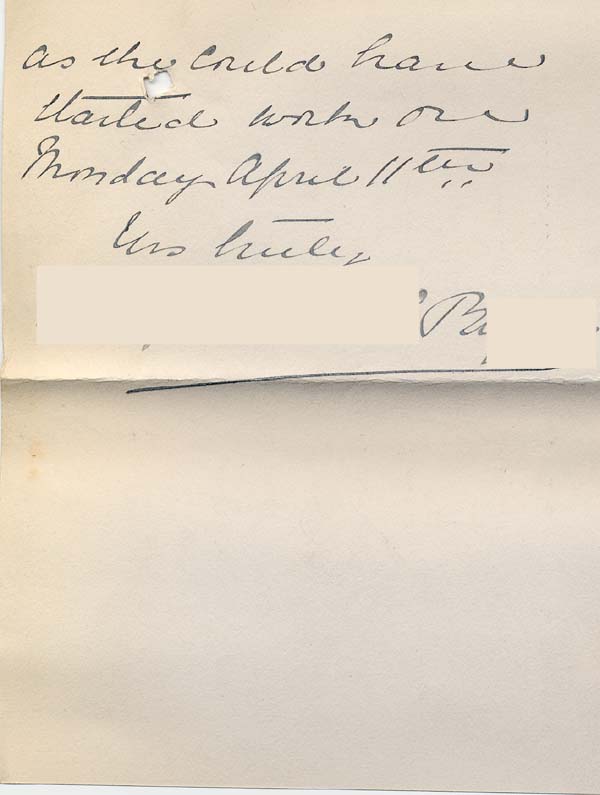 as she could have
started work on
Monday April 11th
Yrs truly